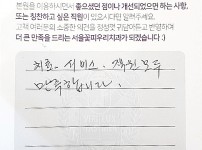 본원을 이용하시면서 좋으셨던 점이나 개선되었으면 하는 사항,
또는 칭찬하고 싶은 직원이 있으시다면 알려주세요.
고객 여러분의 소중한 의견을 경청하고 귀담아듣고 반영하여
더 큰 만족을 드리는 서울꽃피우리치과가 되겠습니다 :)
치료. 서비스. 직원 모두
만족합니다.